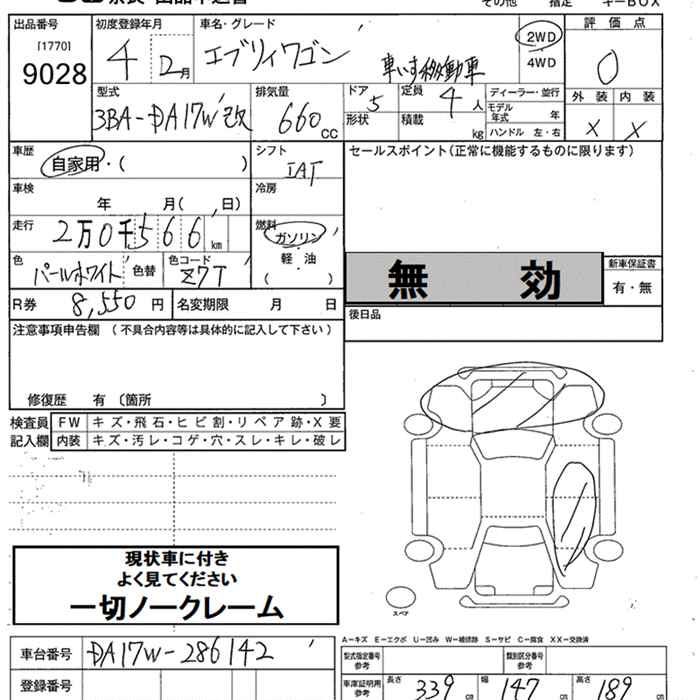 その他 指定 キーBOX
出品番号 初度登録年月 車名・グレード 評価点
[1770]
9028 4 2月 エブリイワゴン 車いす移動車 2WD 4WD 0
型式 排気量 ドア 定員 ディーラー・並行 外装 内装
3BA-DA17W改 660cc 5 4人 モデル年式 年 X X
形状 積載 kg ハンドル 左・右
車歴 シフト セールスポイント(正常に機能するものに限ります)
自家用・( ) IAT
車検 冷房
年 月( 日)
走行 2万0千566km 燃料 ガソリン
軽・油
( )
色 パールホワイト 色替 色コード Z7T
無効
新車保証書
有・無
R券 8,550円 名変期限 月 日
後日品
注意事項申告欄 (不具合内容等は具体的に記入して下さい)
修復歴 有 〔箇所 〕
検査員 FW キズ・飛石・ヒビ割・リペア跡・X要
記入欄 内装 キズ・汚レ・コゲ・穴・スレ・キレ・破レ
現状車に付き
よく見てください
一切ノークレーム
スペア
A-キズ E-エクボ U-凹み W-補修跡 S-サビ C-腐食 XX-交換済
車台番号 DA17W-286142
型式指定番号 参考 類別区分番号 参考
登録番号
車庫証明用 参考 長さ 339cm 幅 147cm 高さ 189cm